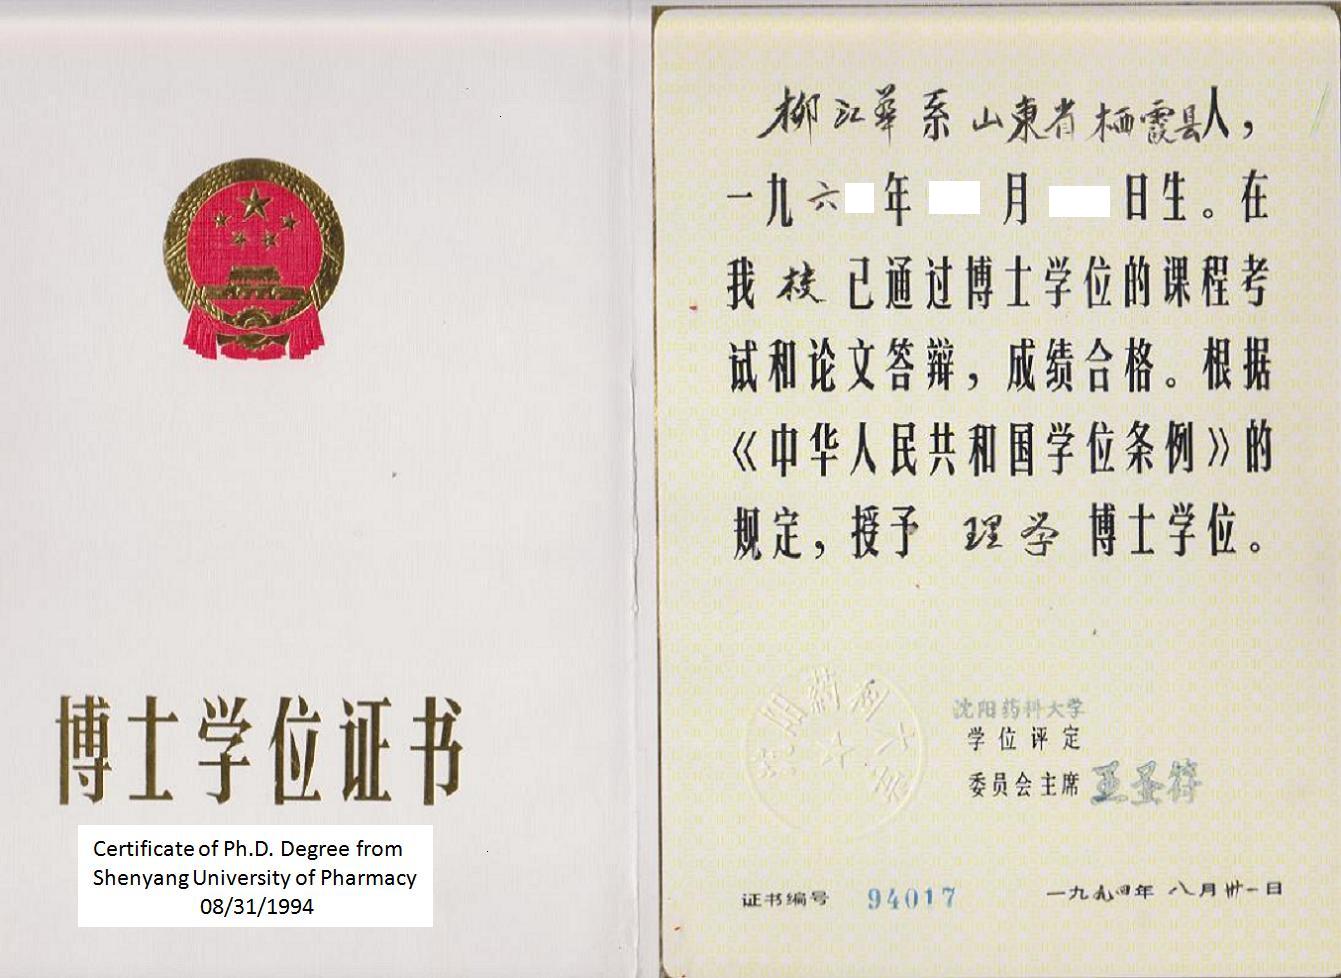 博士学位证书
Certificate of Ph.D. Degree from
Shenyang University of Pharmacy
08/31/1994
柳江华系山東省栖霞县人，
一九六 年 月 日生。在
我校已通过博士学位的课程考
试和论文答辩，成绩合格。根据
《中华人民共和国学位条例》的
规定，授予 理学 博士学位。
沈阳药科大学
学位评定
委员会主席
证书编号 94017 一九九四年八月卅一日